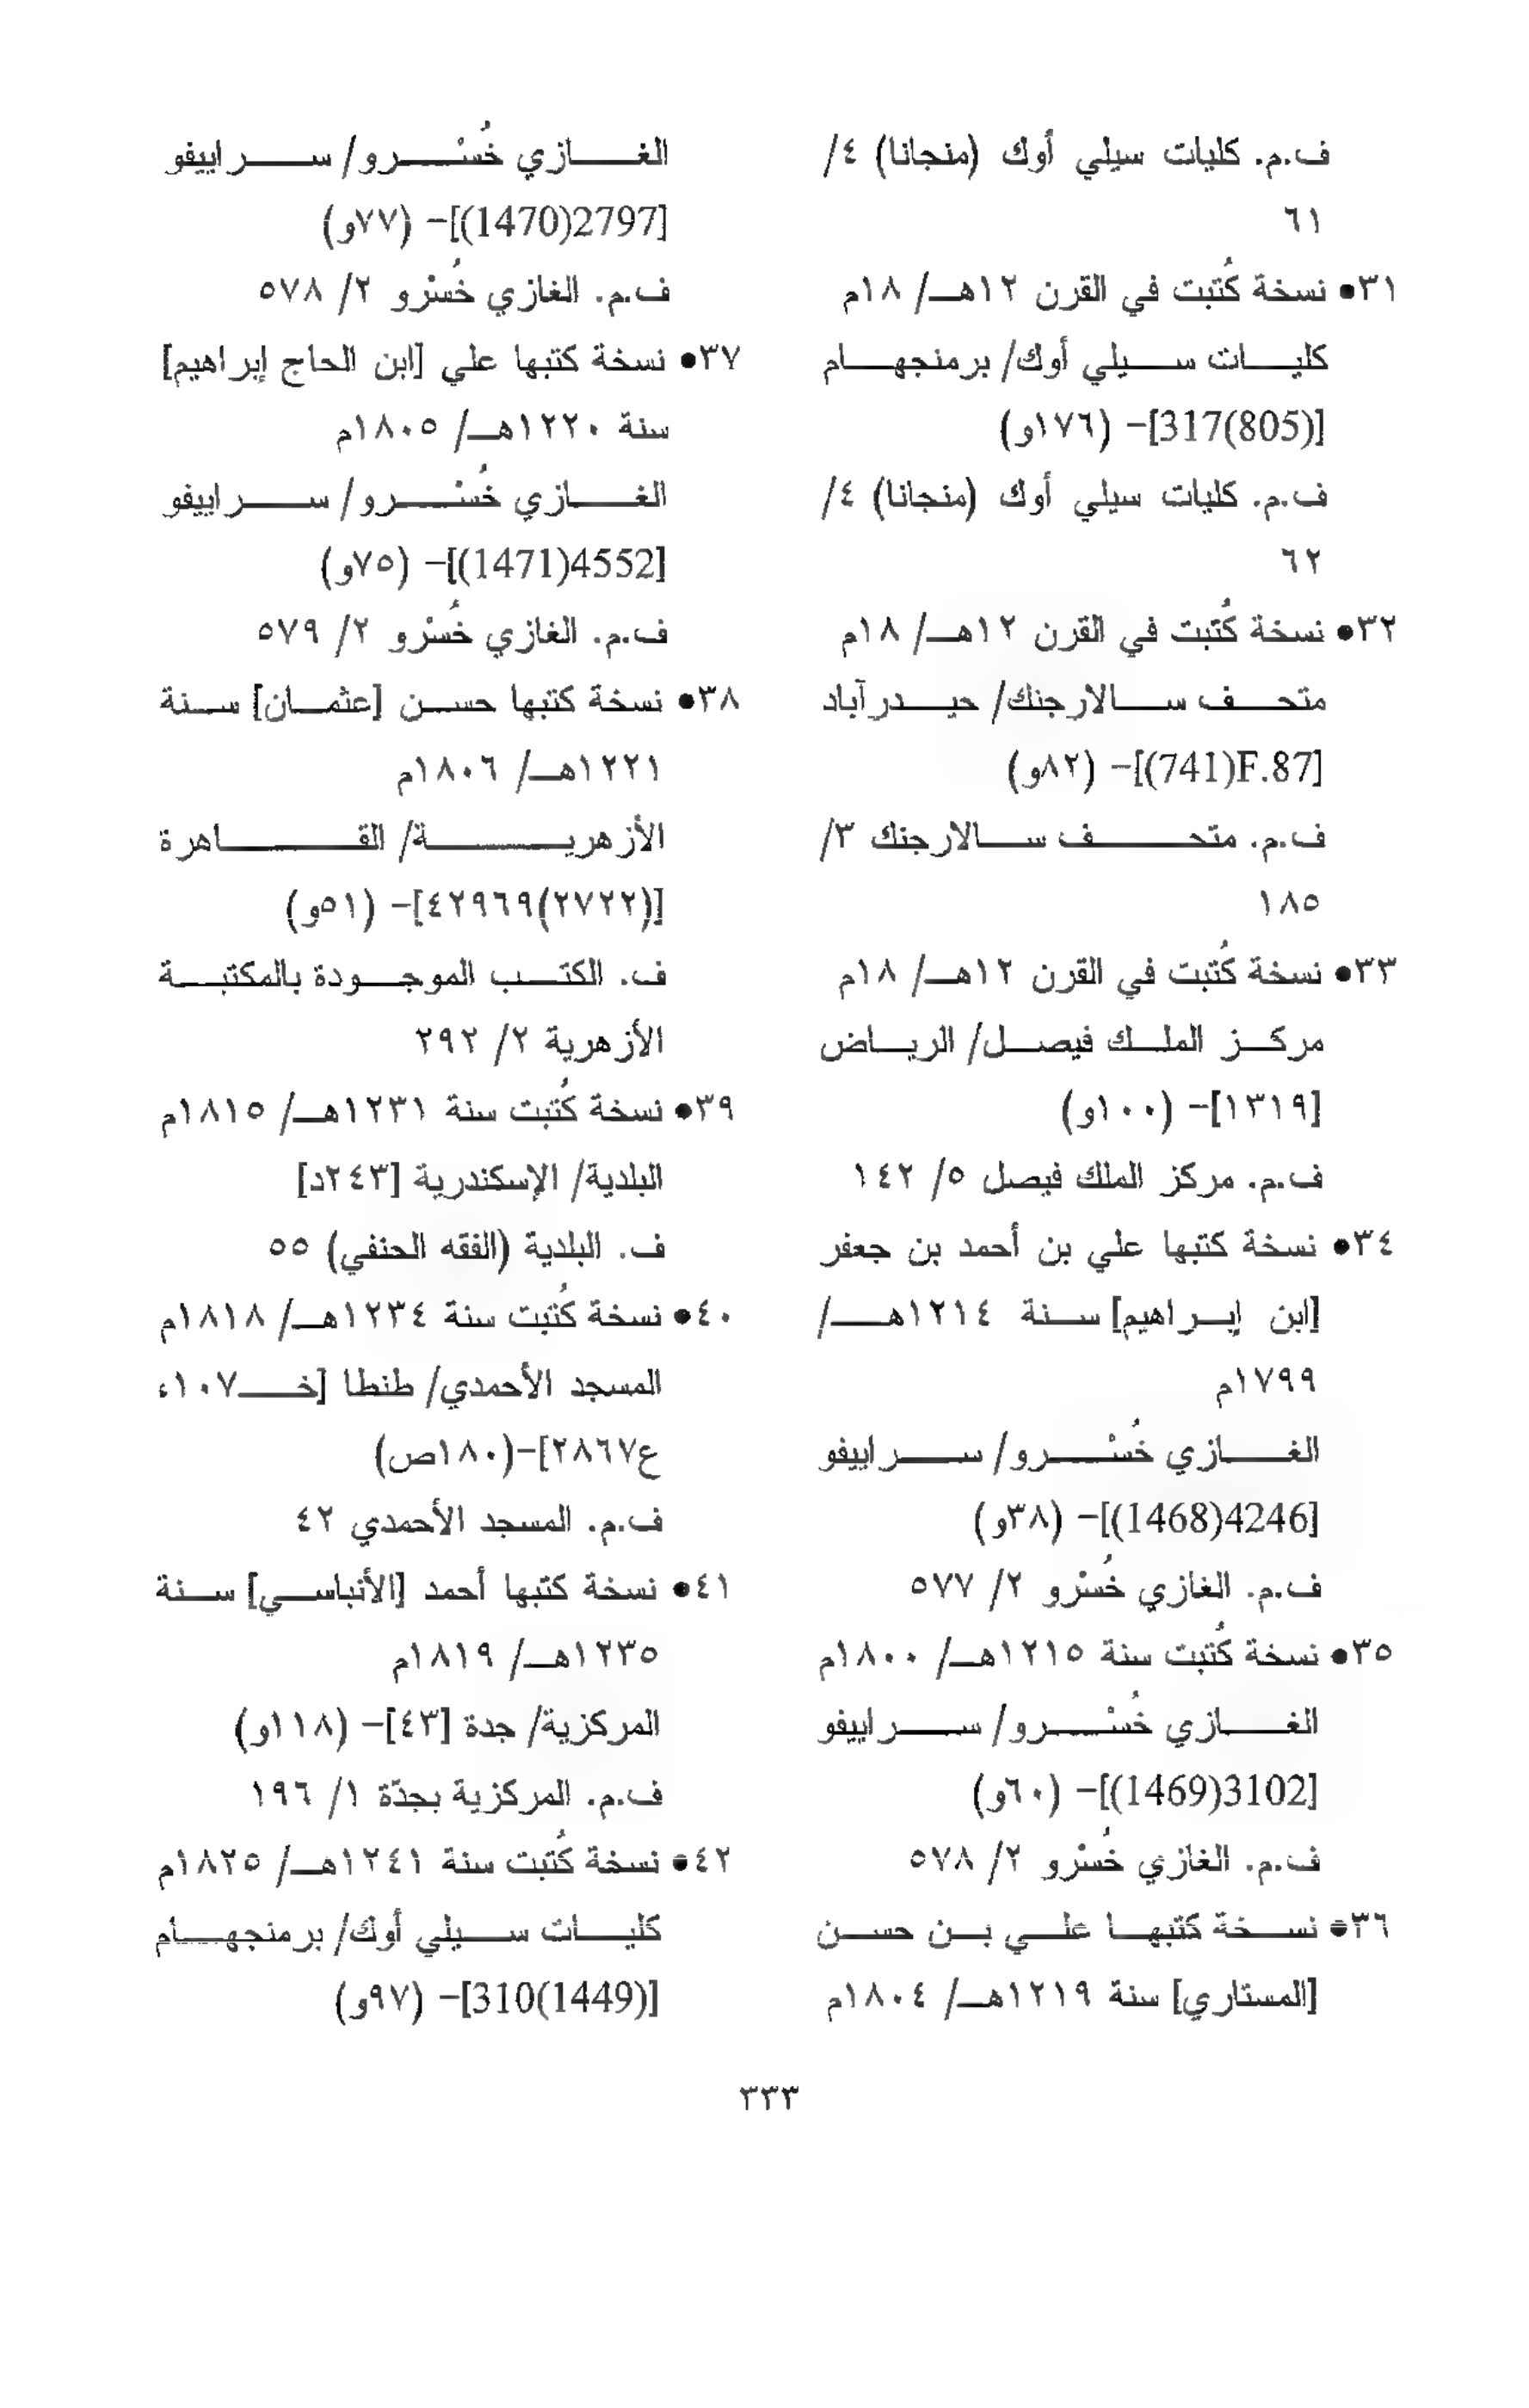 ف.م. كليات سيلي أوك (منجانا) ٤/
٦١
٣١• نسخة كُتبت في القرن ١٢هـ/ ١٨م
كليات سيلي أوك/ برمنجهام
[317(805)]- (١٧٦و)
ف.م. كليات سيلي أوك (منجانا) ٤/
٦٢
٣٢• نسخة كُتبت في القرن ١٢هـ/ ١٨م
متحف سالارجنك/ حيدرآباد
[F.87(741)]- (٨٢و)
ف.م. متحف سالارجنك ٣/
١٨٥
٣٣• نسخة كُتبت في القرن ١٢هـ/ ١٨م
مركز الملك فيصل/ الرياض
[١٣١٩]- (١٠٠و)
ف.م. مركز الملك فيصل ٥/ ١٤٢
٣٤• نسخة كتبها علي بن أحمد بن جعفر
[ابن إبراهيم] سنة ١٢١٤هـ/
١٧٩٩م
الغازي خُسْرو/ سراييفو
[4246(1468)]- (٣٨و)
ف.م. الغازي خُسْرو ٢/ ٥٧٧
٣٥• نسخة كُتبت سنة ١٢١٥هـ/ ١٨٠٠م
الغازي خُسْرو/ سراييفو
[3102(1469)]- (٦٠و)
ف.م. الغازي خُسْرو ٢/ ٥٧٨
٣٦• نسخة كتبها علي بن حسن
[المستاري] سنة ١٢١٩هـ/ ١٨٠٤م
الغازي خُسْرو/ سراييفو
[2797(1470)]- (٧٧و)
ف.م. الغازي خُسْرو ٢/ ٥٧٨
٣٧• نسخة كتبها علي [ابن الحاج إبراهيم]
سنة ١٢٢٠هـ/ ١٨٠٥م
الغازي خُسْرو/ سراييفو
[4552(1471)]- (٧٥و)
ف.م. الغازي خُسْرو ٢/ ٥٧٩
٣٨• نسخة كتبها حسن [عثمان] سنة
١٢٢١هـ/ ١٨٠٦م
الأزهرية/ القاهرة
[(٢٧٢٢)٤٢٩٦٩]- (٥١و)
ف. الكتب الموجودة بالمكتبة
الأزهرية ٢/ ٢٩٢
٣٩• نسخة كُتبت سنة ١٢٣١هـ/ ١٨١٥م
البلدية/ الإسكندرية [٢٤٣د]
ف. البلدية (الفقه الحنفي) ٥٥
٤٠• نسخة كُتبت سنة ١٢٣٤هـ/ ١٨١٨م
المسجد الأحمدي/ طنطا [خـ١٠٧،
ع٢٨٦٧]-(١٨٠ص)
ف.م. المسجد الأحمدي ٤٢
٤١• نسخة كتبها أحمد [الأنباسي] سنة
١٢٣٥هـ/ ١٨١٩م
المركزية/ جدة [٤٣]- (١١٨و)
ف.م. المركزية بجدّة ١/ ١٩٦
٤٢• نسخة كُتبت سنة ١٢٤١هـ/ ١٨٢٥م
كليات سيلي أوك/ برمنجهام
[310(1449)]- (٩٧و)
٣٣٣